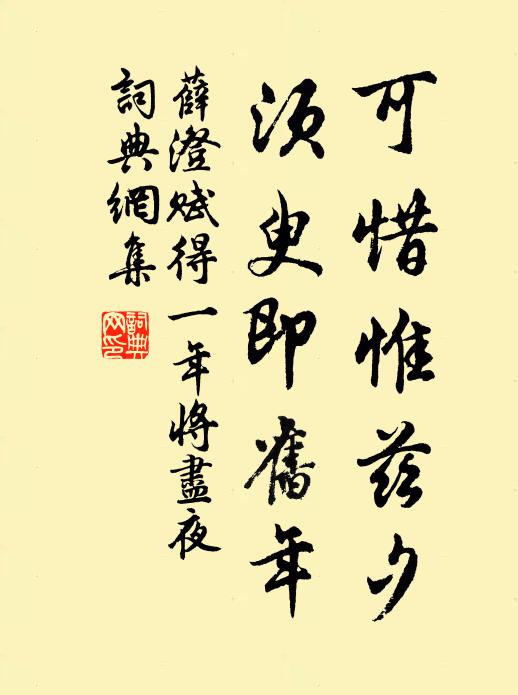 可惜惟兹夕
须臾即舊年
薛澄赋得一年將盡夜
詞典網集
詞典网印